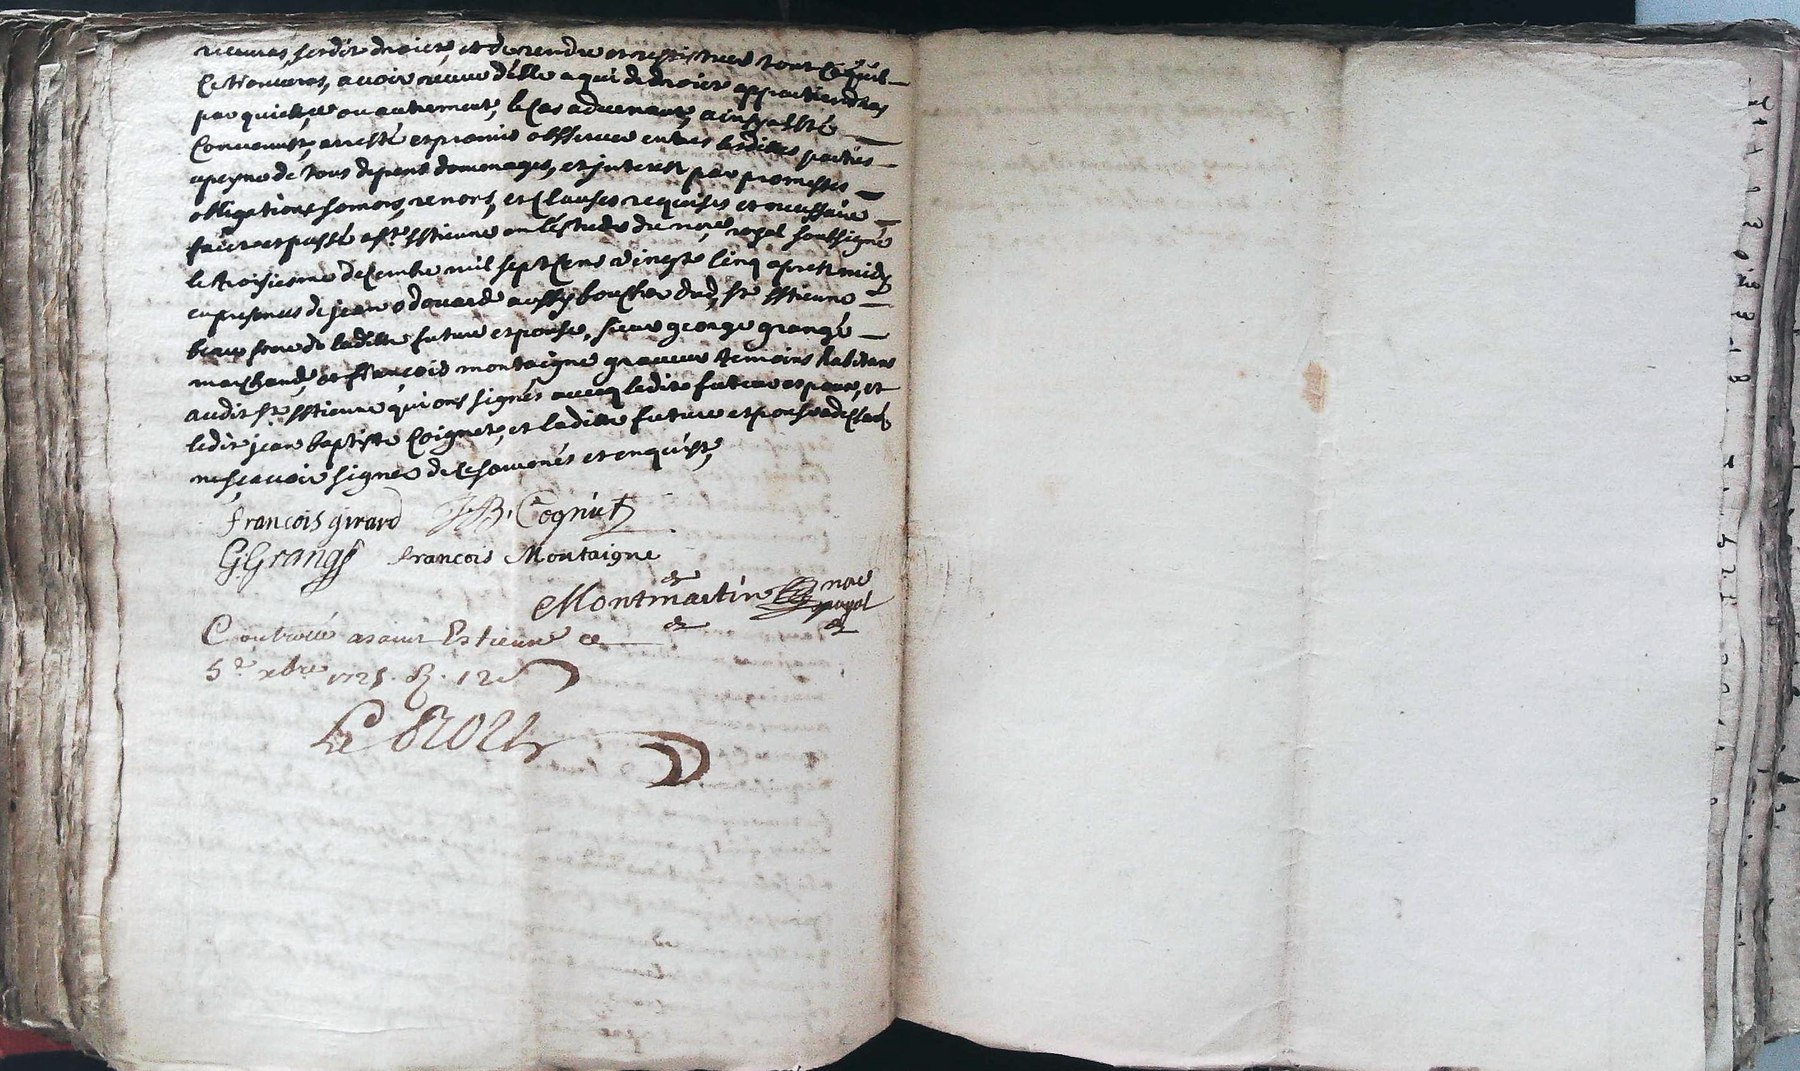 recevra, sondit droict, et de rendre et restituer tout ce quil
se trouvera, avoir receue delle a qui de droict appartiendra
par quictce ou autrement, le cas advenant, ainsy a esté
convenust, arresté et promis observer entres lesdittes parties
a peyne de tous depens dommages, et interest par promesses
obligations somons, renons, et clauses requises et necessaire
faict et passé a st estienne en lestude du nore royal soubsigné
le troisiesme decembre mil sept cens vingt cinq apres midy
en presences de jean odouard aussy boucher dud, st estienne
beau frere de laditte future espouse, sieur george grangé
marchand, et francois montaigne graveur temoins habitans
audit st estienne qui ons signés avecq ledit futeur espoux, et
ledit jean baptiste Coignet, et laditte future espouse a declaré
ne scavoir signer de ce sommés et enquist,
francois girard J.B. Cogniet
G. Grangé francois Montaigne
Montmartin nore
royal
Controllé a saint Estienne ce
5e xbre 1725. R. 12